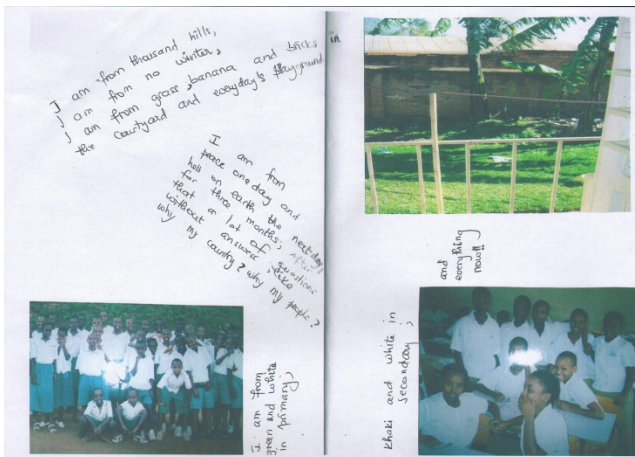 I am from thousand hills,
I am from no winter,
I am from grass, banana and bricks in
the courtyard and everyday's playground
I am from
peace one day and
hell on earth the next day,
for three months; after
that a lot of questions
without answer; like
why my country? why my people?
I am from
green and white
in primary,
khaki and white in
secondary,
and
everything
now!!